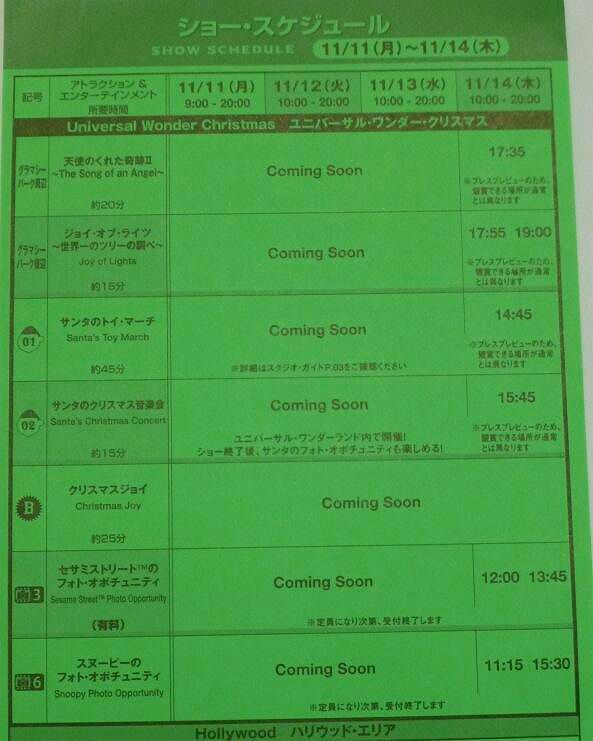 ショー・スケジュール
SHOW SCHEDULE 11/11(月)~11/14(木)
記号 アトラクション & エンターテインメント 所要時間 11/11(月) 9:00 - 20:00 11/12(火) 10:00 - 20:00 11/13(水) 10:00 - 20:00 11/14(木) 10:00 - 20:00
Universal Wonder Christmas ユニバーサル・ワンダー・クリスマス
グラマシーパーク周辺
天使のくれた奇跡II
~The Song of an Angel~
約20分
Coming Soon
17:35
※プレスプレビューのため、
観賞できる場所が通常
とは異なります
グラマシーパーク周辺
ジョイ・オブ・ライツ
~世界一のツリーの調べ~
Joy of Lights
約15分
Coming Soon
17:55 19:00
※プレスプレビューのため、
観賞できる場所が通常
とは異なります
01
サンタのトイ・マーチ
Santa's Toy March
約45分
Coming Soon
※詳細はスタジオ・ガイトP.03をご確認ください
14:45
※プレスプレビューのため、
観賞できる場所が通常
とは異なります
02
サンタのクリスマス音楽会
Santa's Christmas Concert
約15分
Coming Soon
ユニバーサル・ワンダーランド内で開催!
ショー終了後、サンタのフォト・オポチュニティも楽しめる!
15:45
※プレスプレビューのため、
観賞できる場所が通常
とは異なります
B
クリスマスジョイ
Christmas Joy
約25分
Coming Soon
3
セサミストリート™の
フォト・オポチュニティ
Sesame Street™ Photo Opportunity
(有料)
Coming Soon
※定員になり次第、受付終了します
12:00 13:45
6
スヌーピーの
フォト・オポチュニティ
Snoopy Photo Opportunity
Coming Soon
※定員になり次第、受付終了します
11:15 15:30
Hollywood ハリウッド・エリア